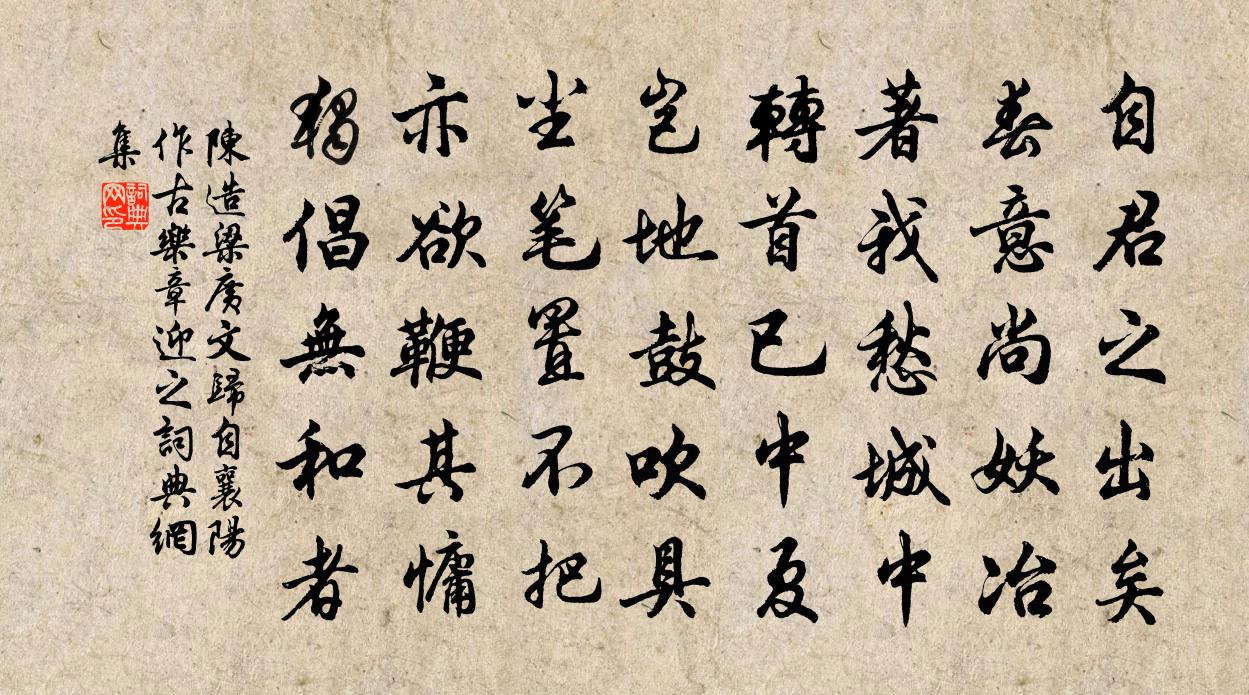 自君之出矣
春意尚妖冶
著我愁城中
轉首已中夏
岂地鼓吹具
尘笔置不把
亦欲鞭其慵
獨倡無和者
陳造梁廣文歸自襄陽
作古樂章迎之詞典網
集
詞典
网印